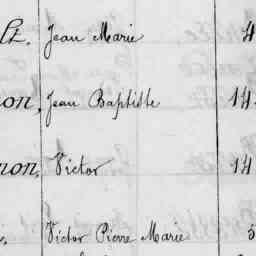 lt. Jean Marie 4
non, Jean Baptiste 14
non, Victor 14
Victor Pierre Marie 5